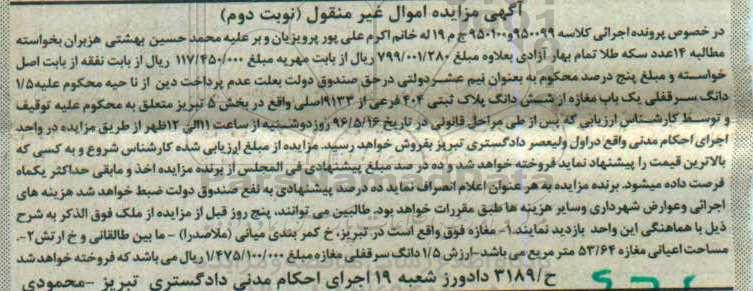 آگهی مزایده اموال غیر منقول (نوبت دوم)
در خصوص پرونده اجرائی کلاسه ۹۵۰۰۹۹و۹۵۰۱۰۰ج م ۱۹ له خانم اکرم علی پور پرویزیان و بر علیه محمد حسین بهشتی هزبران بخواسته
مطالبه ۱۴عدد سکه طلا تمام بهار آزادی بعلاوه مبلغ ۷۹۹/۰۰۱/۲۸۰ ریال از بابت مهریه مبلغ ۱۱۷/۴۵۰/۰۰۰ ریال از بابت نفقه از بابت اصل
خواسته و مبلغ پنج درصد محکوم به بعنوان نیم عشر دولتی در حق صندوق دولت بعلت عدم پرداخت دین از نا حیه محکوم علیه ۱/۵
دانگ سرقفلی یک باب مغازه از شش دانگ پلاک ثبتی ۴۰۴ فرعی از ۹۱۳۳اصلی واقع در بخش ۵ تبریز متعلق به محکوم علیه توقیف
و توسط کارشناس ارزیابی که پس از طی مراحل قانونی در تاریخ ۹۶/۵/۱۶ روز دوشنبه از ساعت ۱۱الی ۱۲ظهر از طریق مزایده در واحد
اجرای احکام مدنی واقع دراول ولیعصر دادگستری تبریز بفروش خواهد رسید. مزایده از مبلغ ارزیابی شده کارشناس شروع و به کسی که
بالاترین قیمت را پیشنهاد نماید فروخته خواهد شد و ده در صد مبلغ پیشنهادی فی المجلس از برنده مزایده اخذ و مابقی حداکثر یکماه
فرصت داده میشود. برنده مزایده به هر عنوان اعلام انصراف نماید ده درصد پیشنهادی به نفع صندوق دولت ضبط خواهد شد هزینه های
اجرائی وعوارض شهرداری وسایر هزینه ها طبق مقررات خواهد بود. طالبین می توانند، پنج روز قبل از مزایده از ملک فوق الذکر به شرح
ذیل با هماهنگی این واحد بازدید نمایند.۱- مغازه فوق واقع است در تبریز، خ کمر بندی میانی (ملاصدرا) - ما بین طالقانی و خ ارتش۲-
مساحت اعیانی مغازه ۵۳/۶۴ متر مربع می باشد-ارزش ۱/۵ دانگ سر قفلی مغازه مبلغ ۱/۴۷۵/۱۰۰/۰۰۰ ریال می باشد که فروخته خواهد شد
ح/۳۱۸۹ دادورز شعبه ۱۹ اجرای احکام مدنی دادگستری تبریز -محمودی